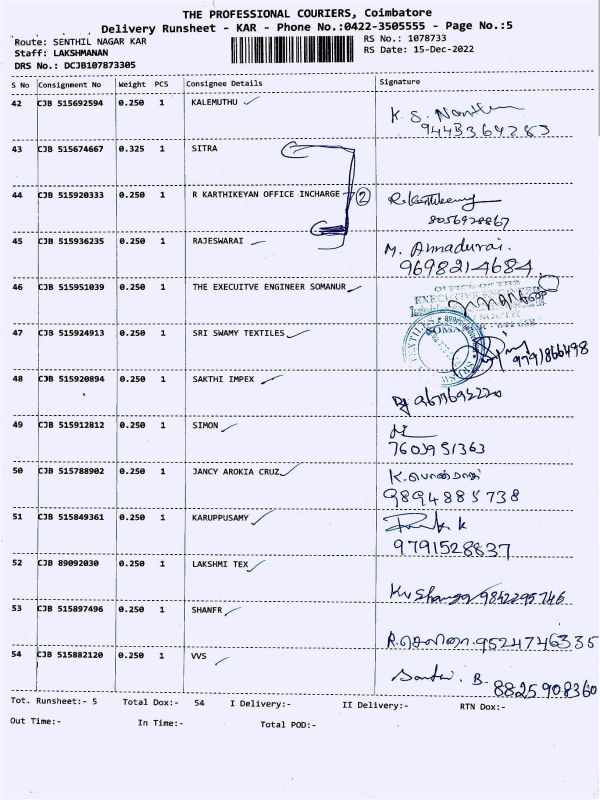 THE PROFESSIONAL COURIERS, Coimbatore
Delivery Runsheet - KAR - Phone No.:0422-3505555 - Page No.:5
Route: SENTHIL NAGAR KAR
RS No.: 1078733
Staff: LAKSHMANAN
RS Date: 15-Dec-2022
DRS No.: DCJB107873305
S No Consignment No Weight PCS Consignee Details Signature
42 CJB 515692594 0.250 1 KALEMUTHU K. S.
9443364283
43 CJB 515674667 0.325 1 SITRA
44 CJB 515920333 0.250 1 R KARTHIKEYAN OFFICE INCHARGE 2 R. Karthikeyan
8056928867
45 CJB 515936235 0.250 1 RAJESWARAI M. Annadurai.
9698214684
46 CJB 515951039 0.250 1 THE EXECUITVE ENGINEER SOMANUR
OFFICE OF THE
EXECUTIVE ENGINEER
47 CJB 515924913 0.250 1 SRI SWAMY TEXTILES
9791866498
48 CJB 515920894 0.250 1 SAKTHI IMPEX
49 CJB 515912812 0.250 1 SIMON
7603951363
50 CJB 515788902 0.250 1 JANCY AROKIA CRUZ
9894885738
51 CJB 515849361 0.250 1 KARUPPUSAMY
9791528837
52 CJB 89092030 0.250 1 LAKSHMI TEX 9842295746
53 CJB 515897496 0.250 1 SHANFR 9524746335
54 CJB 515882120 0.250 1 VVS
8825908360
Tot. Runsheet:- 5 Total Dox:- 54 I Delivery:- II Delivery:- RTN Dox:-
Out Time:- In Time:- Total POD:-